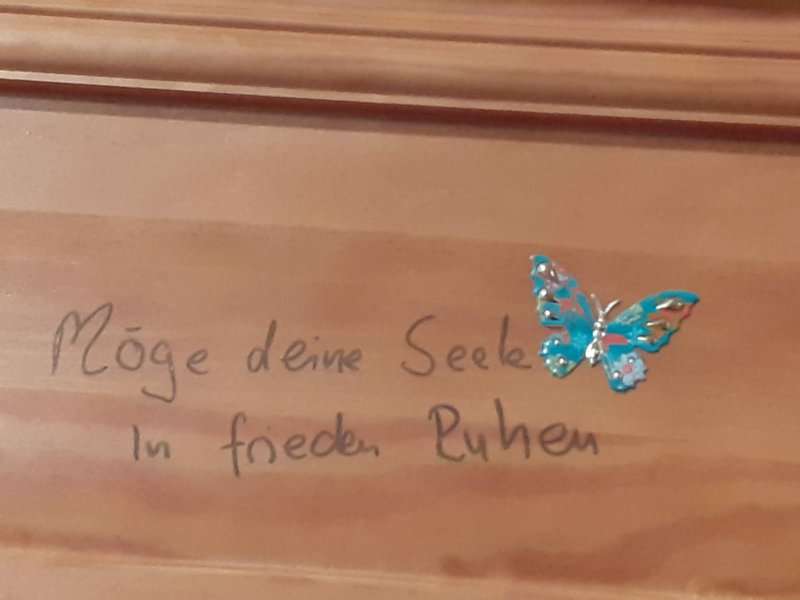 Möge deine Seele
In frieden Ruhen